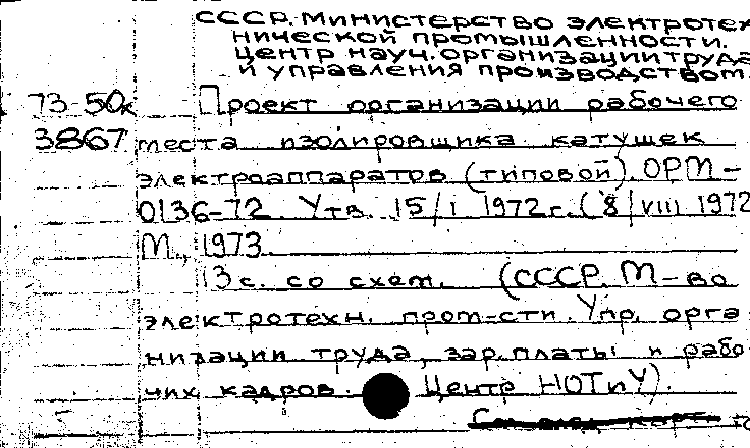 СССР. Министерство электротех
нической промышленности.
Центр науч. организации труда
и управления производством.
73-50к Проект организации рабочего
3867 места изолировщика катушек
электроаппаратов (типовой). ОРМ-
0136-72. Утв. 15/I 1972г. (8/VIII 1972
М., 1973.
13с. со схем. (СССР. М-во
электротехн. пром-сти. Упр. орга
низации труда, зар.платы и рабо
чих кадров. Центр НОТиУ).